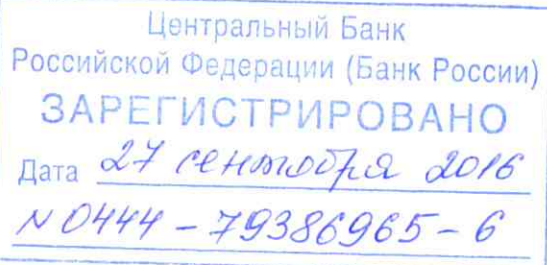 Центральный Банк
Российской Федерации (Банк России)
ЗАРЕГИСТРИРОВАНО
Дата 27 сентября 2016
N 0444 - 79386965 - 6